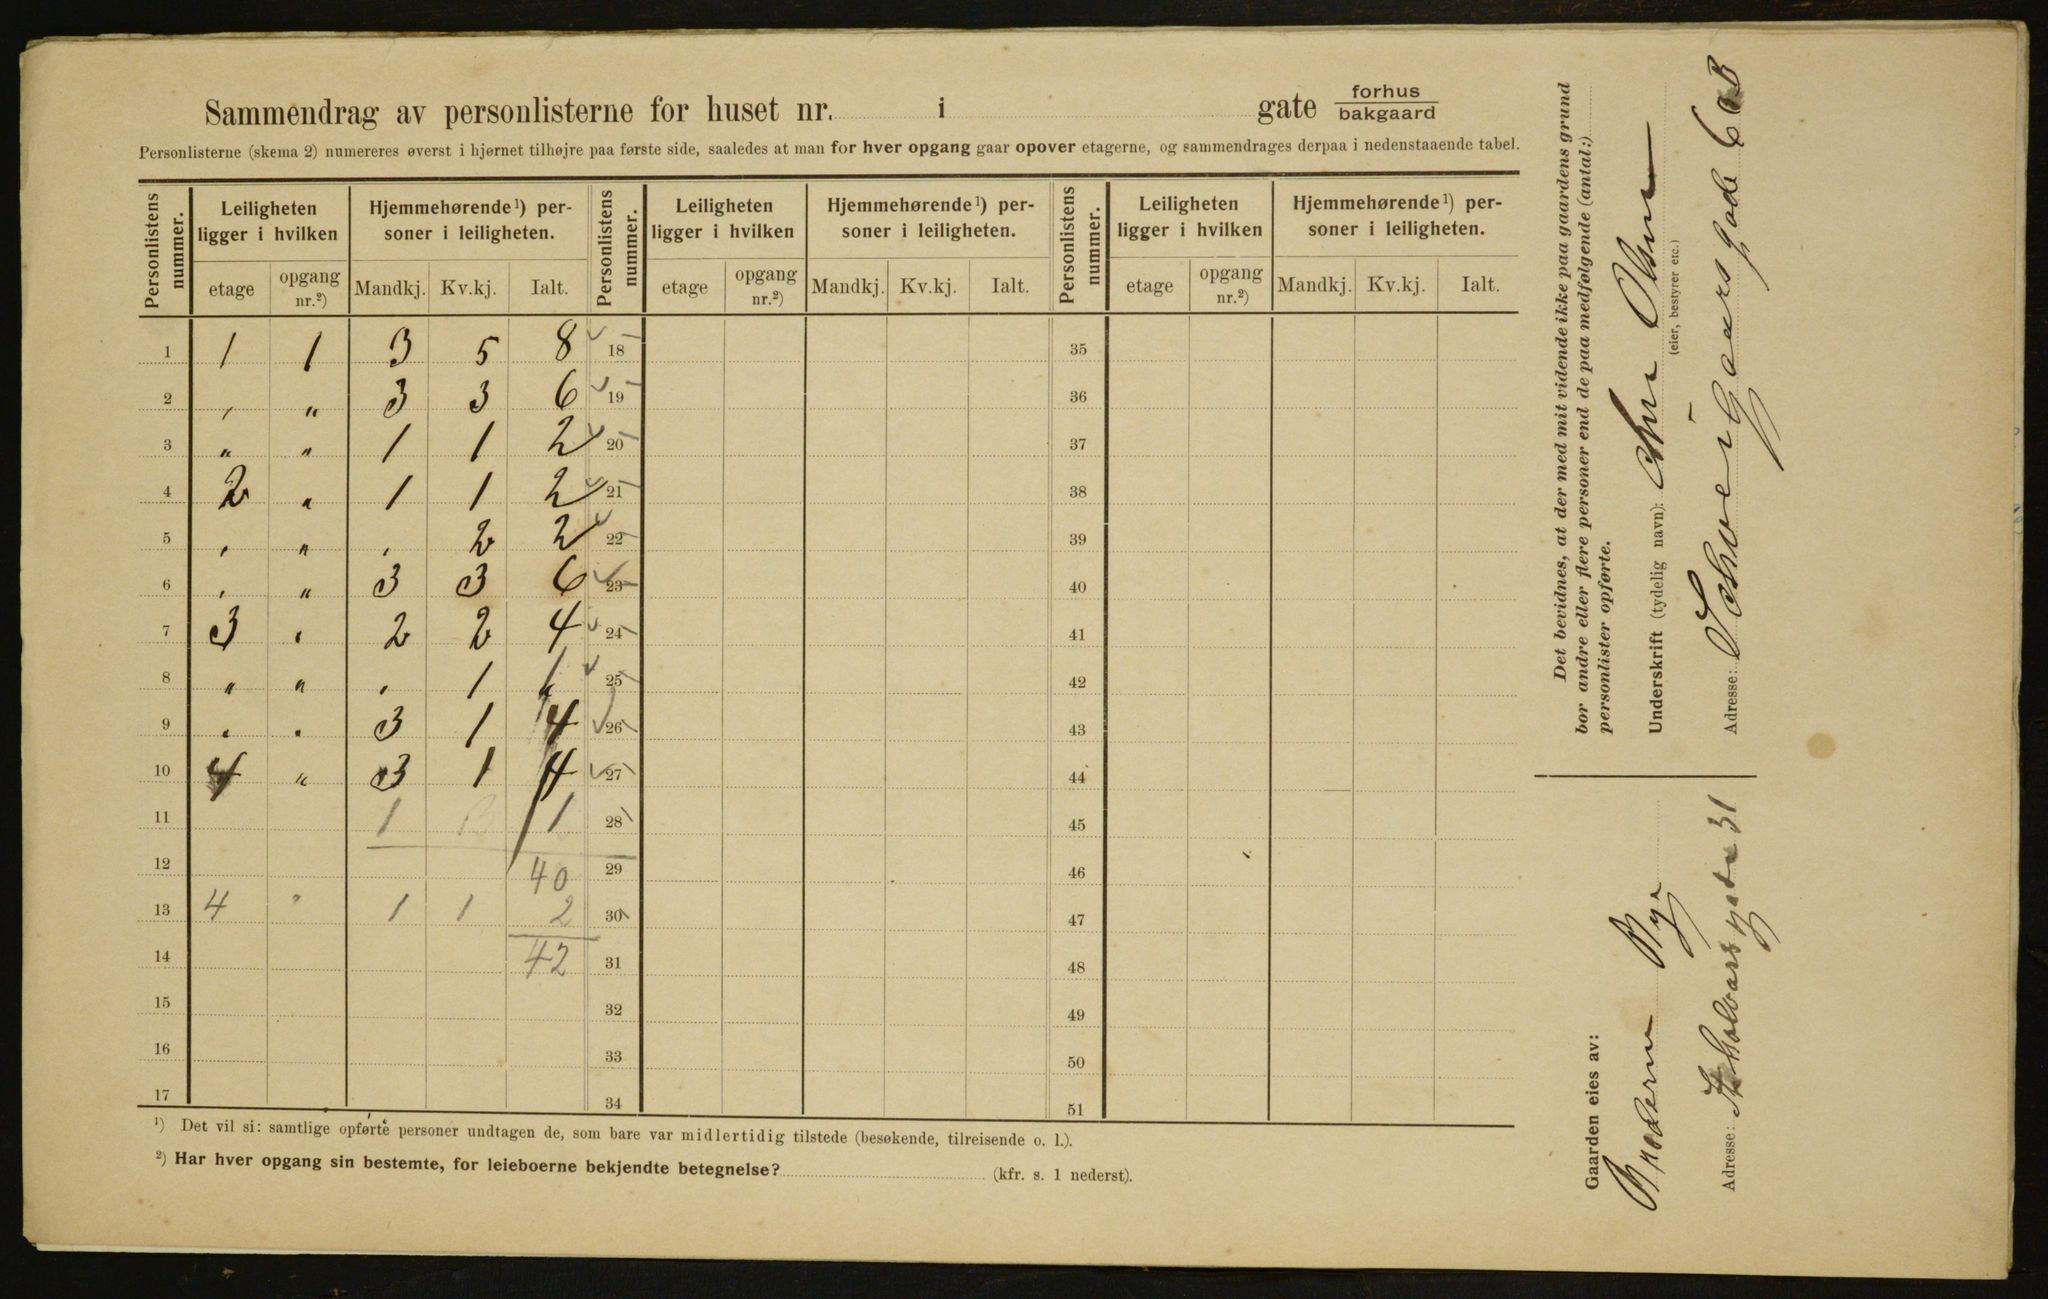 Sammendrag av personlisterne for huset nr. i gate forhus/bakgaard
Personlisterne (skema 2) numereres øverst i hjørnet tilhøjre paa første side, saaledes at man for hver opgang gaar opover etagerne, og sammendrages derpaa i nedenstaaende tabel.
Personlistens nummer. Leiligheten ligger i hvilken Hjemmehørende ¹) personer i leiligheten. Personlistens nummer. Leiligheten ligger i hvilken Hjemmehørende ¹) personer i leiligheten. Personlistens nummer. Leiligheten ligger i hvilken Hjemmehørende ¹) personer i leiligheten.
etage opgang nr.²) Mandkj. Kv.kj. Ialt. etage opgang nr.²) Mandkj. Kv.kj. Ialt. etage opgang nr.²) Mandkj. Kv.kj. Ialt.
1 1 1 3 5 8 18 35
2 " " 3 3 6 19 36
3 " " 1 1 2 20 37
4 2 " 1 1 2 21 38
5 " " " 2 2 22 39
6 " " 3 3 6 23 40
7 3 " 2 2 4 24 41
8 " " " 1 1 25 42
9 " " 3 1 4 26 43
10 4 " 3 1 4 27 44
11 1 1 28 45
12 40 29 46
13 4 " 1 1 2 30 47
14 42 31 48
15 32 49
16 33 50
17 34 51
¹) Det vil si: samtlige opførte personer undtagen de, som bare var midlertidig tilstede (besøkende, tilreisende o. l.).
²) Har hver opgang sin bestemte, for leieboerne bekjendte betegnelse? (kfr. s. 1 nederst).
Det bevidnes, at der med mit vidende ikke paa gaardens grund
bor andre eller flere personer end de paa medfølgende (antal:)
personlister opførte.
Underskrift (tydelig navn): Olsen
(eier, bestyrer etc.)
Adresse: Schweigaardsgade 60B
Gaarden eies av:
Brødrene Rye
Adresse: 31